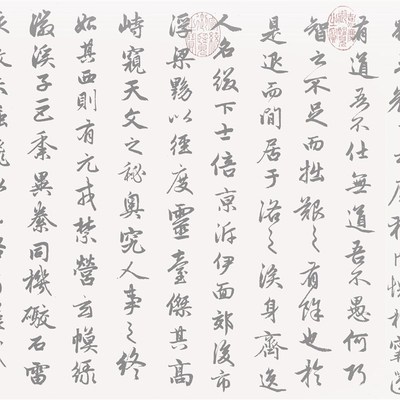 有道吾不仕無道吾不愚何巧
智之不足而拙艱之有餘也於
是退而閒居于洛之涘身齊逸
人名綴下士倍京泝伊面郊後市
浮梁黝以徑度靈臺傑其高
峙窺天文之秘奥究人事之終
始其西則有元戎禁營玄幙緑
徽溪子巨黍異絭同機礮石雷